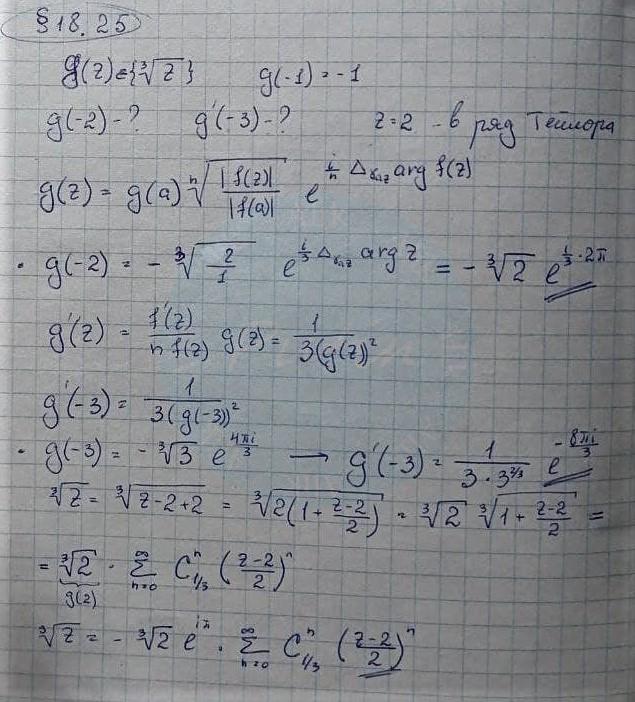 § 18.25
g(z) ∈ {∛z}   g(-1) = -1
g(-2) - ?   g'(-3) - ?   z=2 - в ряд Тейлора
g(z) = g(a) ⁿ√(|f(z)| / |f(a)|) e^{i/n Δ_{γ_{az}} arg f(z)}
• g(-2) = - ∛(2/1) e^{i/3 Δ_{γ_{az}} arg z} = - ∛2 e^{i/3 · 2π}
g'(z) = f'(z) / (n f(z)) g(z) = 1 / (3(g(z))²
g'(-3) = 1 / (3(g(-3))²
• g(-3) = - ∛3 e^{4πi/3} → g'(-3) = 1 / (3 · 3^{2/3}) e^{-8πi/3}
∛z = ∛(z-2+2) = ∛(2(1 + (z-2)/2)) = ∛2 ∛(1 + (z-2)/2) =
= ∛2 · ∑_{n=0}^{∞} C_{1/3}^{n} ((z-2)/2)^n
g(2)
∛z = - ∛2 e^{iπ} · ∑_{n=0}^{∞} C_{1/3}^{n} ((z-2)/2)^n